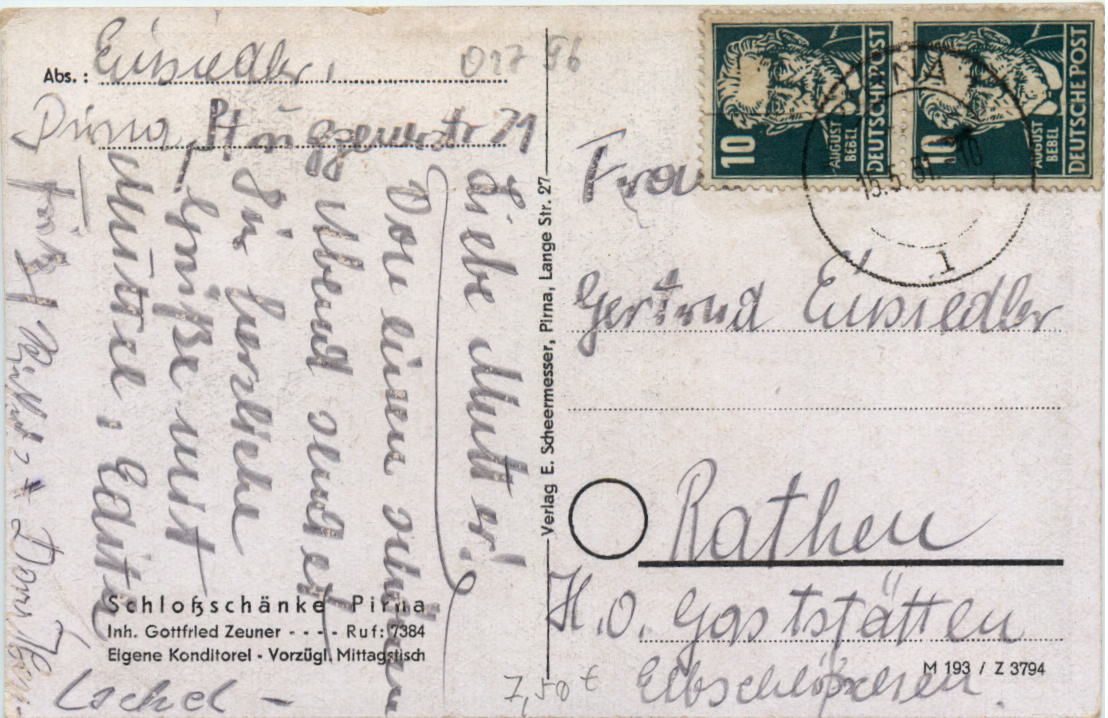 Abs.: Einsiedler,
017 96
Pirna,
Liebe Mutter!
Von einem schönen
Abend sendet
Dir herzliche
Grüße mit
Muttel, Edith
Schloßschänke Pirna
Inh. Gottfried Zeuner - - - - Ruf: 7384
Eigene Konditorei - Vorzügl. Mittagstisch
7,50 €
Verlag E. Scheermesser, Pirna, Lange Str. 27
10
AUGUST BEBEL
DEUTSCHE POST
10
AUGUST BEBEL
DEUTSCHE POST
15.5.51
1
Frau
Gertrud Einsiedler
Rathen
H.O. Gaststätten
Elbschlößchen.
M 193 / Z 3794